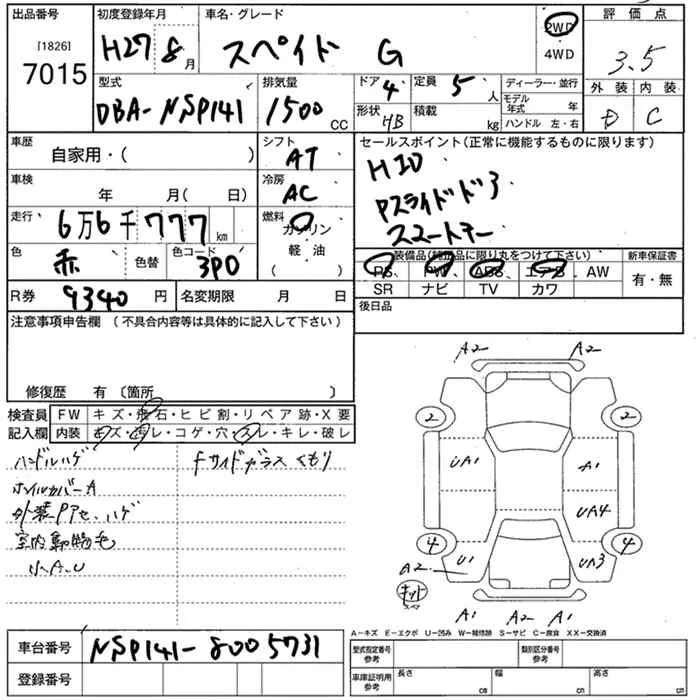 出品番号 初度登録年月 車名・グレード 2WD 評価点
[1826] 7015 H27 8月 スペイド G 4WD 3.5
型式 排気量 ドア 4 定員 5人 ディーラー・並行 外装 内装
DBA-NSP141 1500cc 形状 HB 積載 kg モデル年式 年 ハンドル 左・右 D C
車歴 自家用・( ) シフト AT セールスポイント(正常に機能するものに限ります)
車検 年 月( 日) 冷房 AC HID
走行 6万6千777km 燃料 ガソリン Pスライドドア
色 赤 色替 色コード 3P0 軽油( ) スマートキー
装備品(純正品に限り丸をつけて下さい) 新車保証書
PS、PW、ABS、エアB、AW 有・無
R券 9340円 名変期限 月 日 SR ナビ TV カワ
注意事項申告欄(不具合内容等は具体的に記入して下さい) 後日品
修復歴 有〔箇所 〕
検査員 FW キズ・飛石・ヒビ割・リペア跡・X要
記入欄 内装 キズ・汚レ・コゲ・穴・スレ・キレ・破レ
ハンドルハゲ fサイドガラスくもり
ホイルカバーA
外装Pアセ、ハゲ
室内動物毛
小A.U
A2 A2
2 2
UA1 A1
UA4
4 4
U1 UA3
A2
キット
スペア
A1 A2 A1
A−キズ E−エクボ U−凹み W−補修跡 S−サビ C−腐食 XX−交換済
車台番号 NSP141-8005731
型式指定番号 参考 類別区分番号 参考
登録番号
車庫証明用 参考 長さ cm 幅 cm 高さ cm